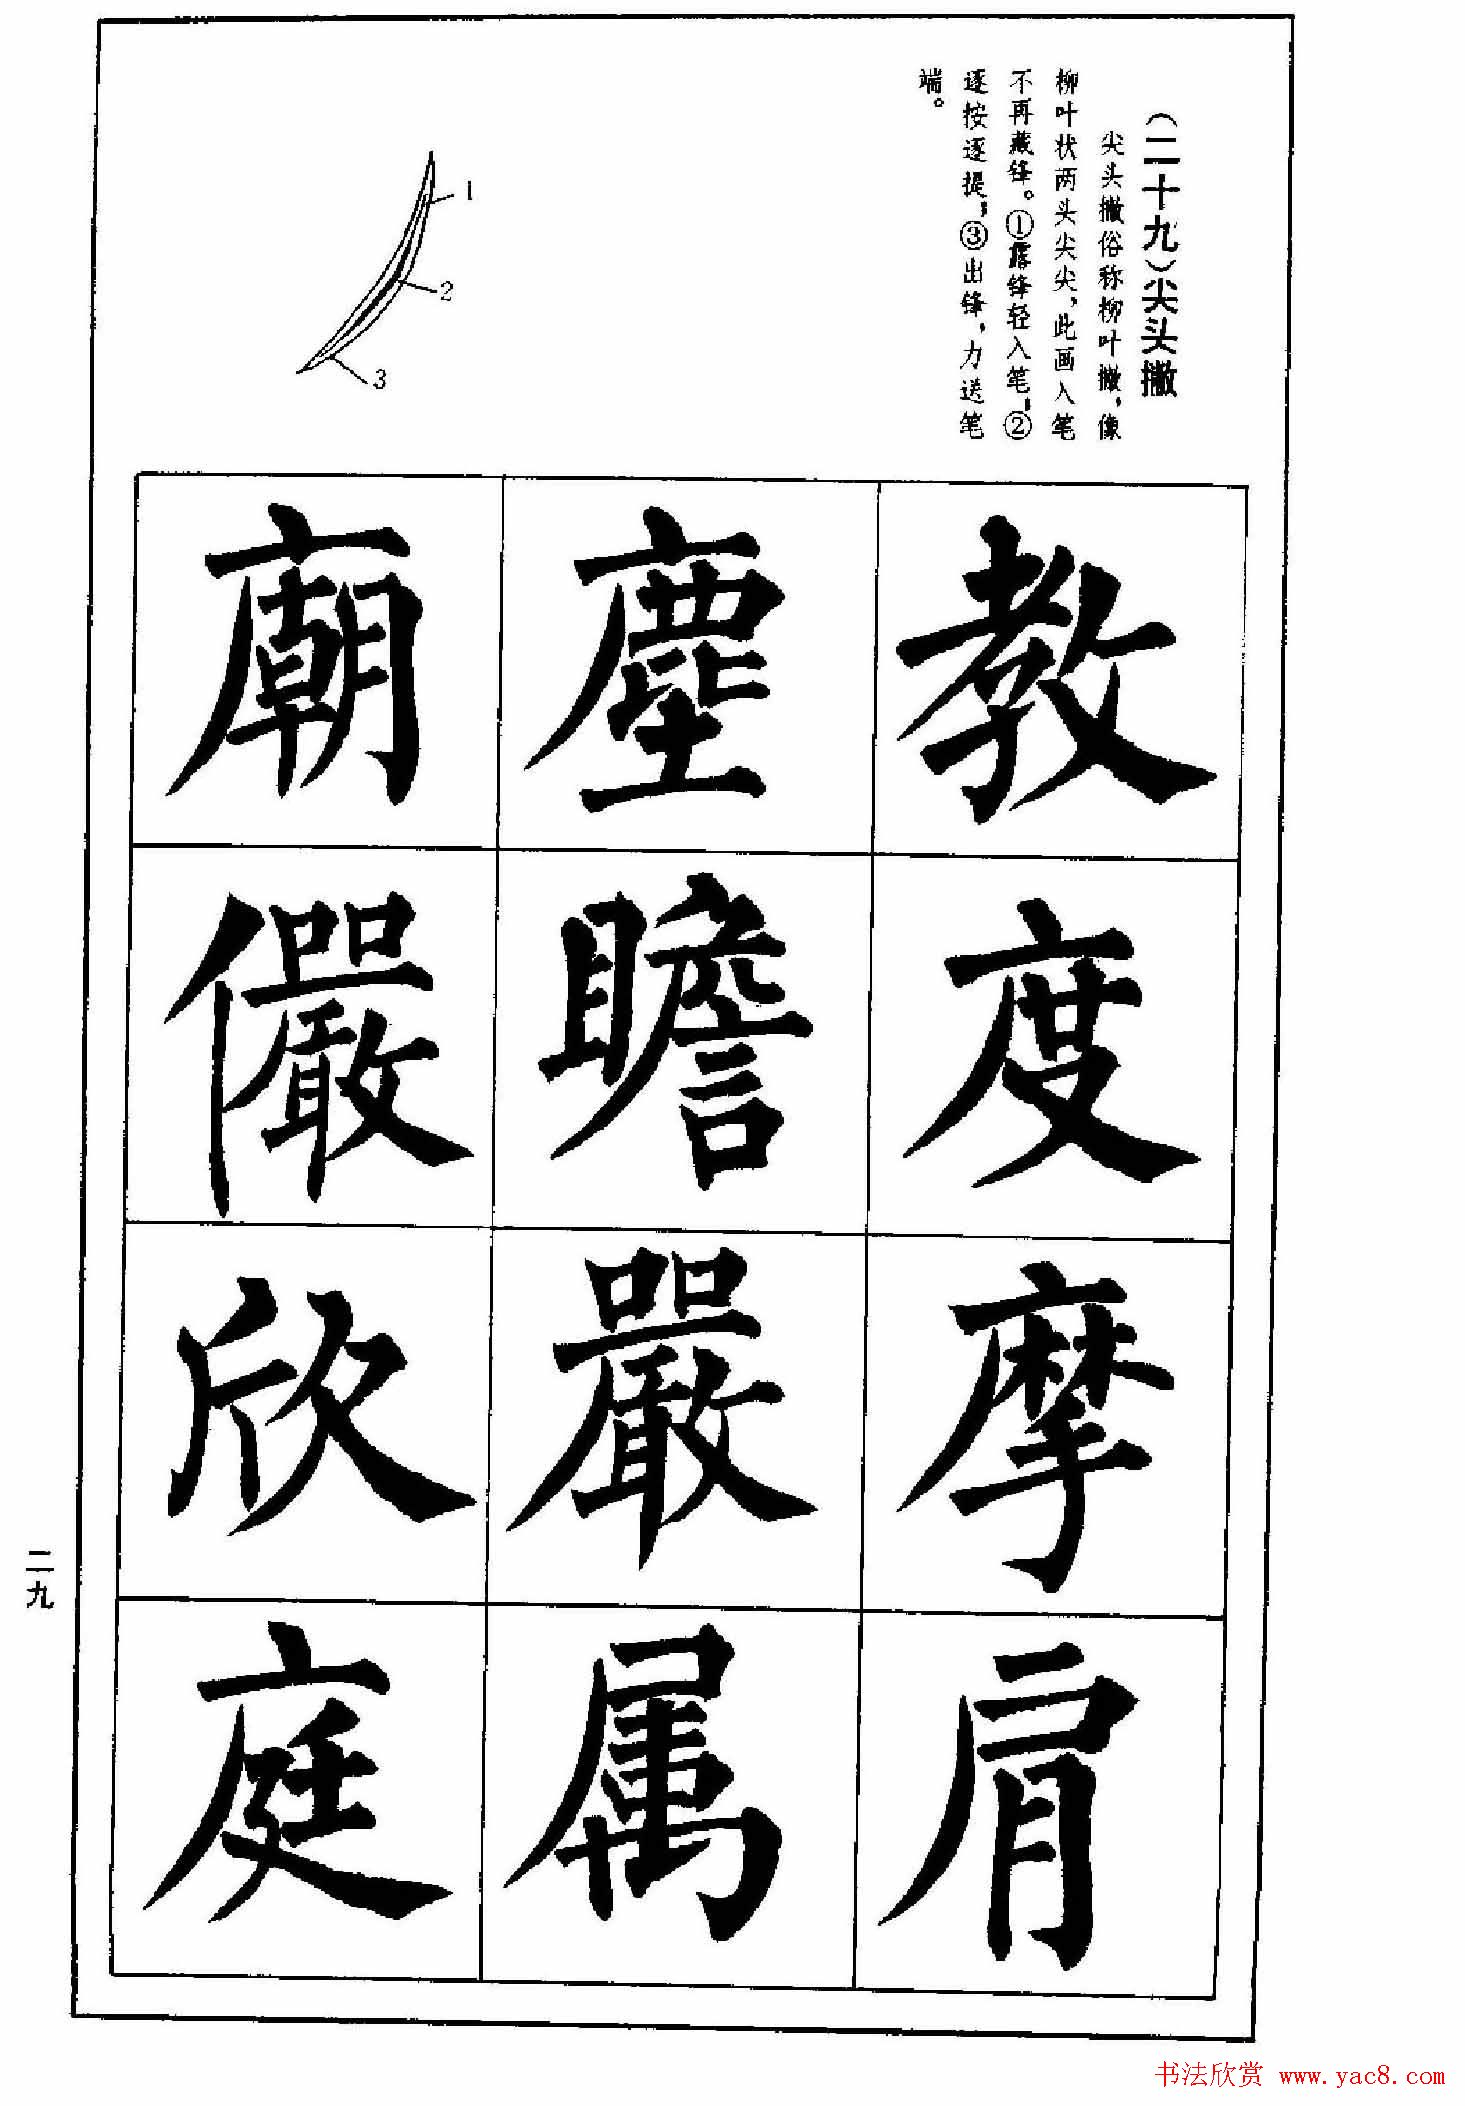 （二十九）尖头撇
尖头撇俗称柳叶撇，像
柳叶状两头尖尖，此画入笔
不再藏锋。①露锋轻入笔；②
逐按逐提；③出锋，力送笔
端。
1
2
3
教度摩肩
塵瞻嚴属
廟儼欣庭
二九
书法欣赏 www.yac8.com